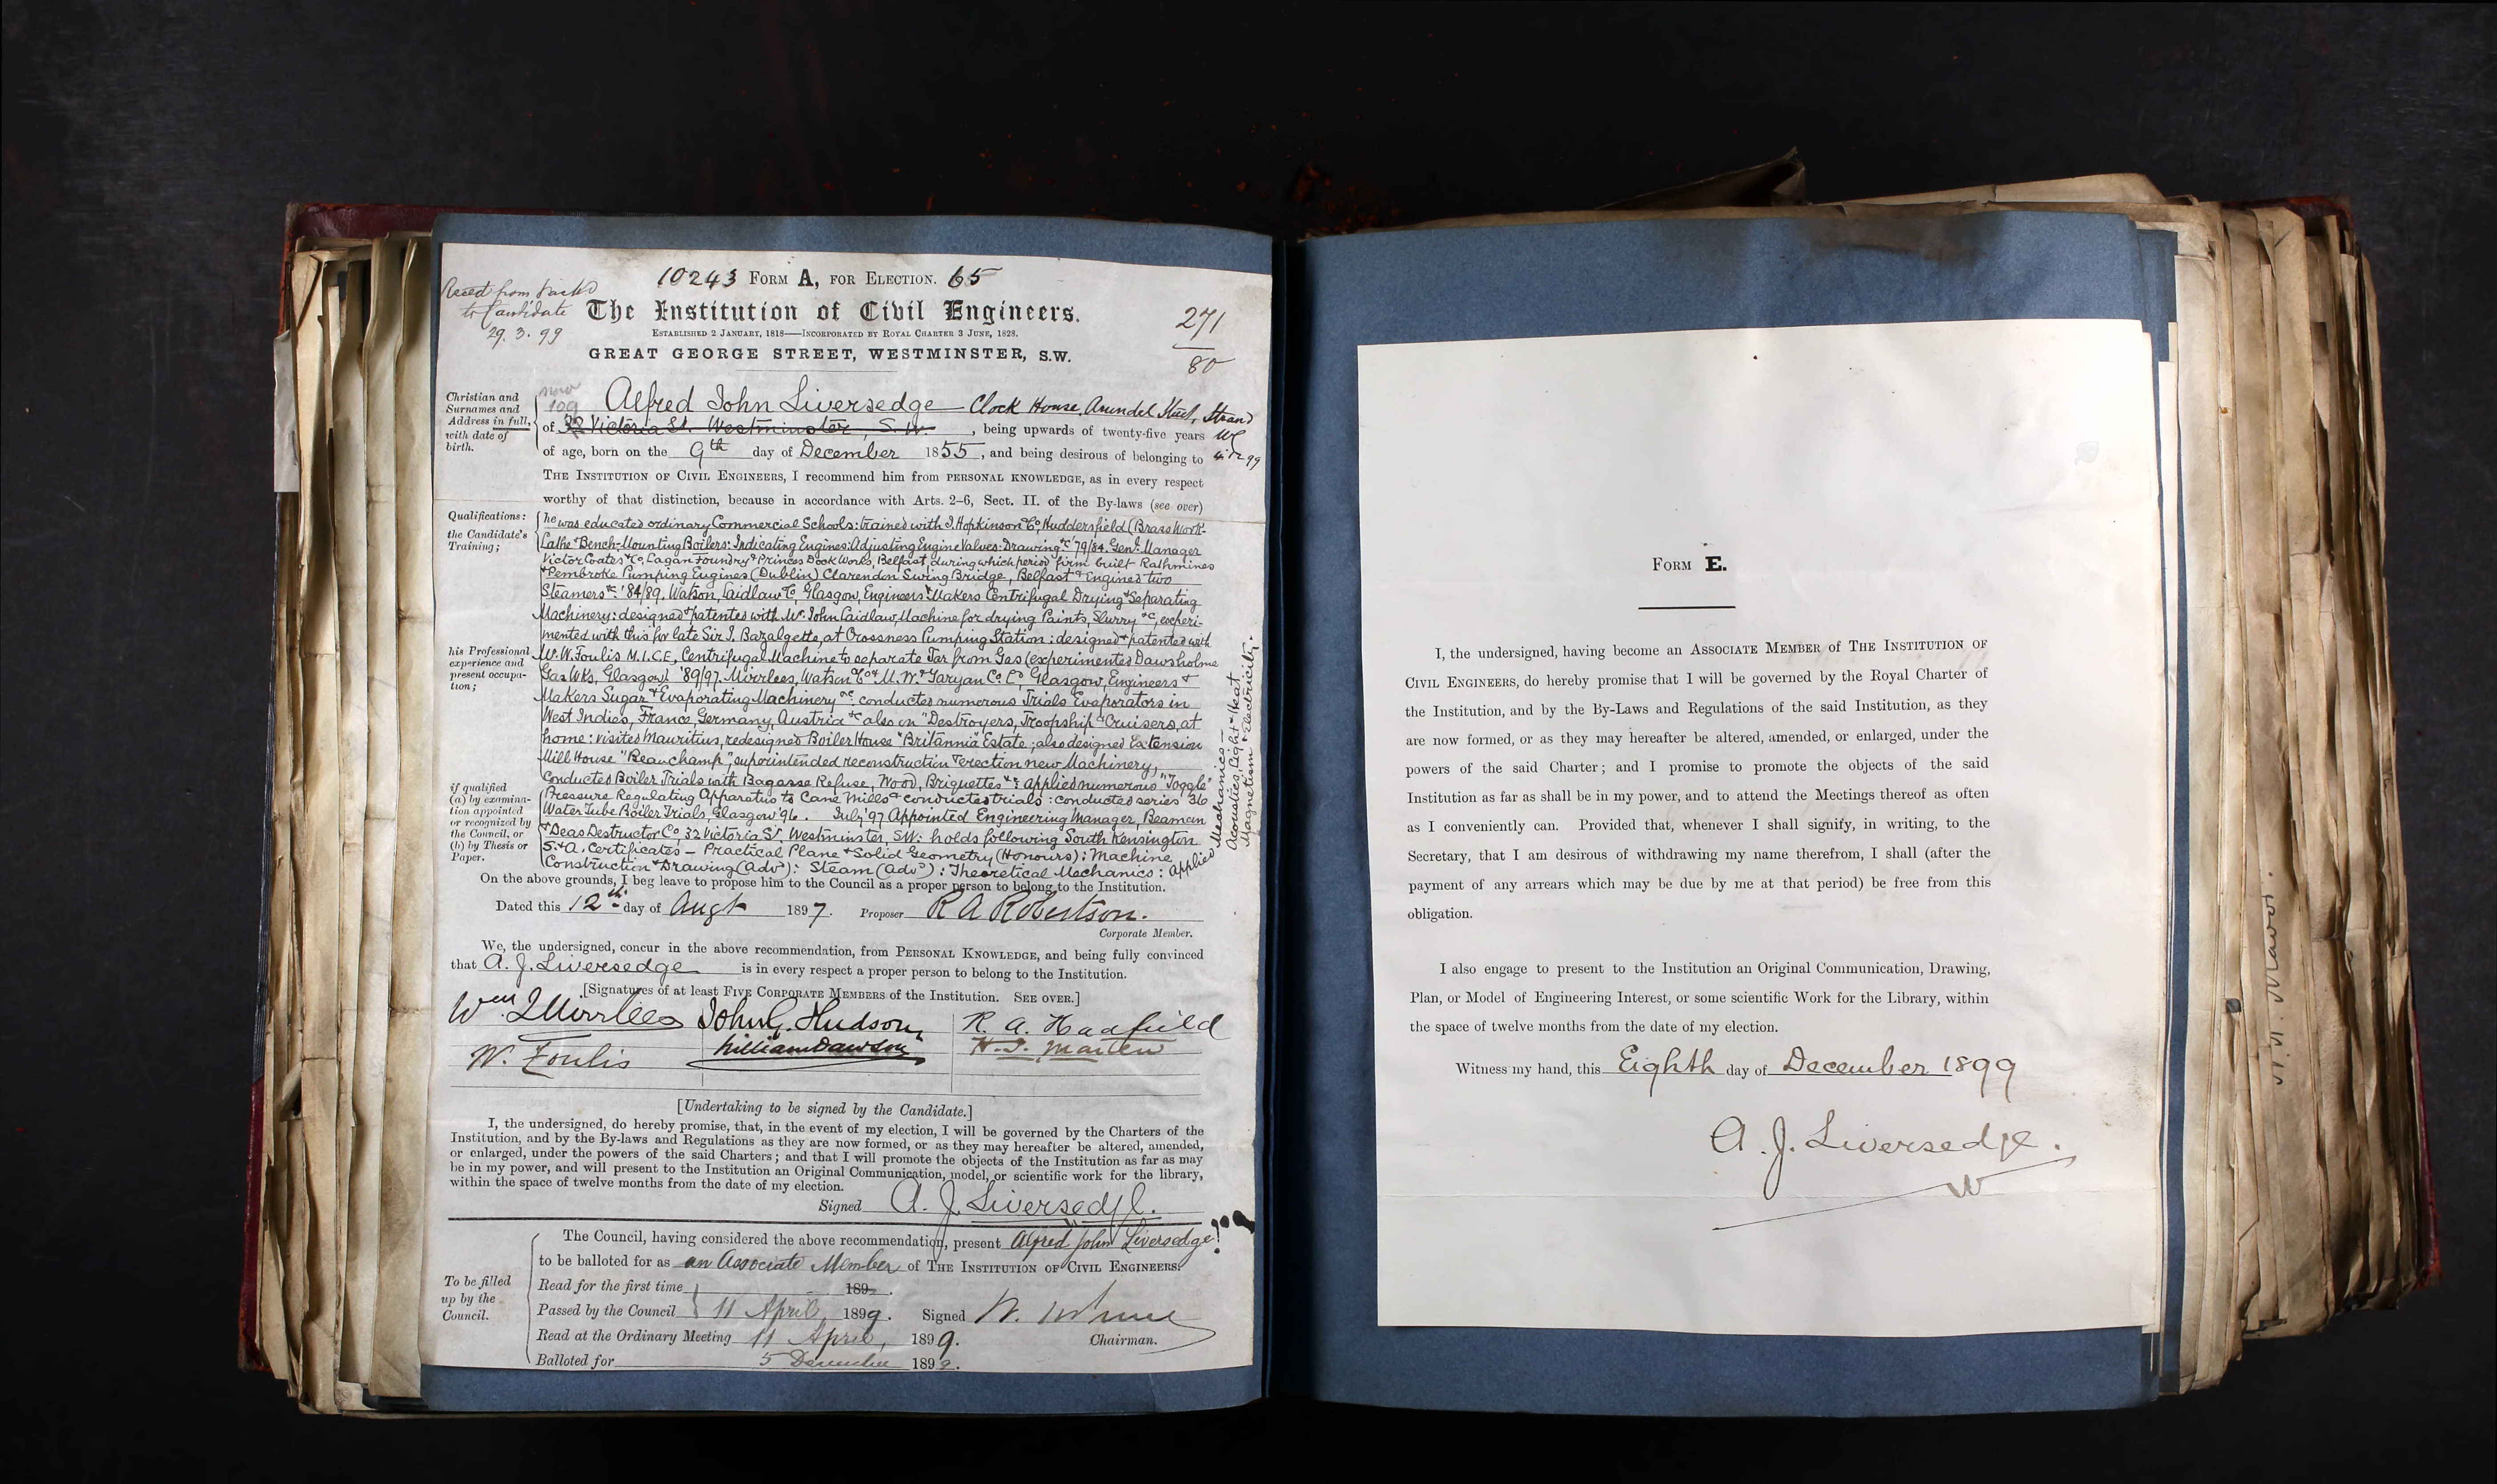 10243 FORM A, FOR ELECTION. 65
to Candidate
29.3.99
The Institution of Civil Engineers.
ESTABLISHED 2 JANUARY, 1818—INCORPORATED BY ROYAL CHARTER 3 JUNE, 1828.
GREAT GEORGE STREET, WESTMINSTER, S.W.
271
80
Christian and Surnames and Address in full, with date of birth.
now
109
Alfred John Liversedge Clock House, Arundel Street, Strand
WC
of 32 Victoria St. Westminster, S.W., being upwards of twenty-five years
of age, born on the 9th day of December 1855, and being desirous of belonging to
THE INSTITUTION OF CIVIL ENGINEERS, I recommend him from PERSONAL KNOWLEDGE, as in every respect
worthy of that distinction, because in accordance with Arts. 2–6, Sect. II. of the By-laws (see over)
Qualifications:
the Candidate's Training;
he was educated ordinary Commercial Schools: trained with J. Hopkinson & Co, Huddersfield (Brass Work-
Lathe & Bench-Mounting Boilers: Indicating Engines: Adjusting Engine Valves: Drawing &c '79/84. Genl. Manager
Victor Coates & Co, Lagan Foundry & Princes Dock Works, Belfast, during which period firm built Rathmines
& Pembroke Pumping Engines (Dublin) Clarendon Swing Bridge, Belfast & Engined two
Steamers &c: '84/89. Watson, Laidlaw & Co, Glasgow, Engineers & Makers Centrifugal Drying & Separating
Machinery: designed & patented with Mr. John Laidlaw, Machine for drying Paints, Slurry &c, experi-
mented with this for late Sir J. Bazalgette, at Crossness Pumping Station: designed & patented with
his Professional experience and present occupation;
Mr. W. Foulis M.I.C.E, Centrifugal Machine to separate Tar from Gas (experimented Dawsholme
Gas Wks, Glasgow) '89/97. Mirrlees, Watson & Co & M. W. & Yaryan Co. Ld, Glasgow, Engineers &
Makers Sugar & Evaporating Machinery &c: conducted numerous Trials Evaporators in
West Indies, France, Germany, Austria &c also on "Destroyers, Troopship & Cruisers, at
home: visited Mauritius, redesigned Boiler House "Britannia" Estate; also designed Extension
Mill House "Beauchamp", superintended reconstruction & erection new Machinery,
Conducted Boiler Trials with Bagasse Refuse, Wood, Briquettes &c: applied numerous "Toggle"
if qualified (a) by examination appointed or recognized by the Council, or (b) by Thesis or Paper.
Pressure Regulating Apparatus to Cane Mills & conducted trials: conducted series 36
Water Tube Boiler Trials, Glasgow '96. July '97 Appointed Engineering Manager, Beaman
& Deas Destructor Co, 32 Victoria St, Westminster, SW: holds following South Kensington
S. & A. Certificates – Practical Plane & Solid Geometry (Honours): Machine
Construction & Drawing (advd): Steam (advd): Theoretical Mechanics: Applied Mechanics –
Acoustics, Light & Heat
Magnetism & Electricity.
On the above grounds, I beg leave to propose him to the Council as a proper person to belong to the Institution.
Dated this 12th day of Augt 1897. Proposer R A Robertson.
Corporate Member.
We, the undersigned, concur in the above recommendation, from PERSONAL KNOWLEDGE, and being fully convinced
that A. J. Liversedge is in every respect a proper person to belong to the Institution.
[Signatures of at least FIVE CORPORATE MEMBERS of the Institution. SEE OVER.]
Wm. J Mirrlees John G. Hudson R. A. Hadfield
W. Foulis William Dawson H. J. Marten
[Undertaking to be signed by the Candidate.]
I, the undersigned, do hereby promise, that, in the event of my election, I will be governed by the Charters of the
Institution, and by the By-laws and Regulations as they are now formed, or as they may hereafter be altered, amended,
or enlarged, under the powers of the said Charters; and that I will promote the objects of the Institution as far as may
be in my power, and will present to the Institution an Original Communication, model, or scientific work for the library,
within the space of twelve months from the date of my election.
Signed A. J. Liversedge.
To be filled up by the Council.
The Council, having considered the above recommendation, present Alfred John Liversedge
to be balloted for as an Associate Member of THE INSTITUTION OF CIVIL ENGINEERS.
Read for the first time 189 .
Passed by the Council 11 April 1899. Signed
Read at the Ordinary Meeting 11 April, 1899. Chairman.
Balloted for 5 December 1899.
FORM E.
I, the undersigned, having become an ASSOCIATE MEMBER of THE INSTITUTION OF
CIVIL ENGINEERS, do hereby promise that I will be governed by the Royal Charter of
the Institution, and by the By-Laws and Regulations of the said Institution, as they
are now formed, or as they may hereafter be altered, amended, or enlarged, under the
powers of the said Charter; and I promise to promote the objects of the said
Institution as far as shall be in my power, and to attend the Meetings thereof as often
as I conveniently can. Provided that, whenever I shall signify, in writing, to the
Secretary, that I am desirous of withdrawing my name therefrom, I shall (after the
payment of any arrears which may be due by me at that period) be free from this
obligation.
I also engage to present to the Institution an Original Communication, Drawing,
Plan, or Model of Engineering Interest, or some scientific Work for the Library, within
the space of twelve months from the date of my election.
Witness my hand, this Eighth day of December 1899
A. J. Liversedge.